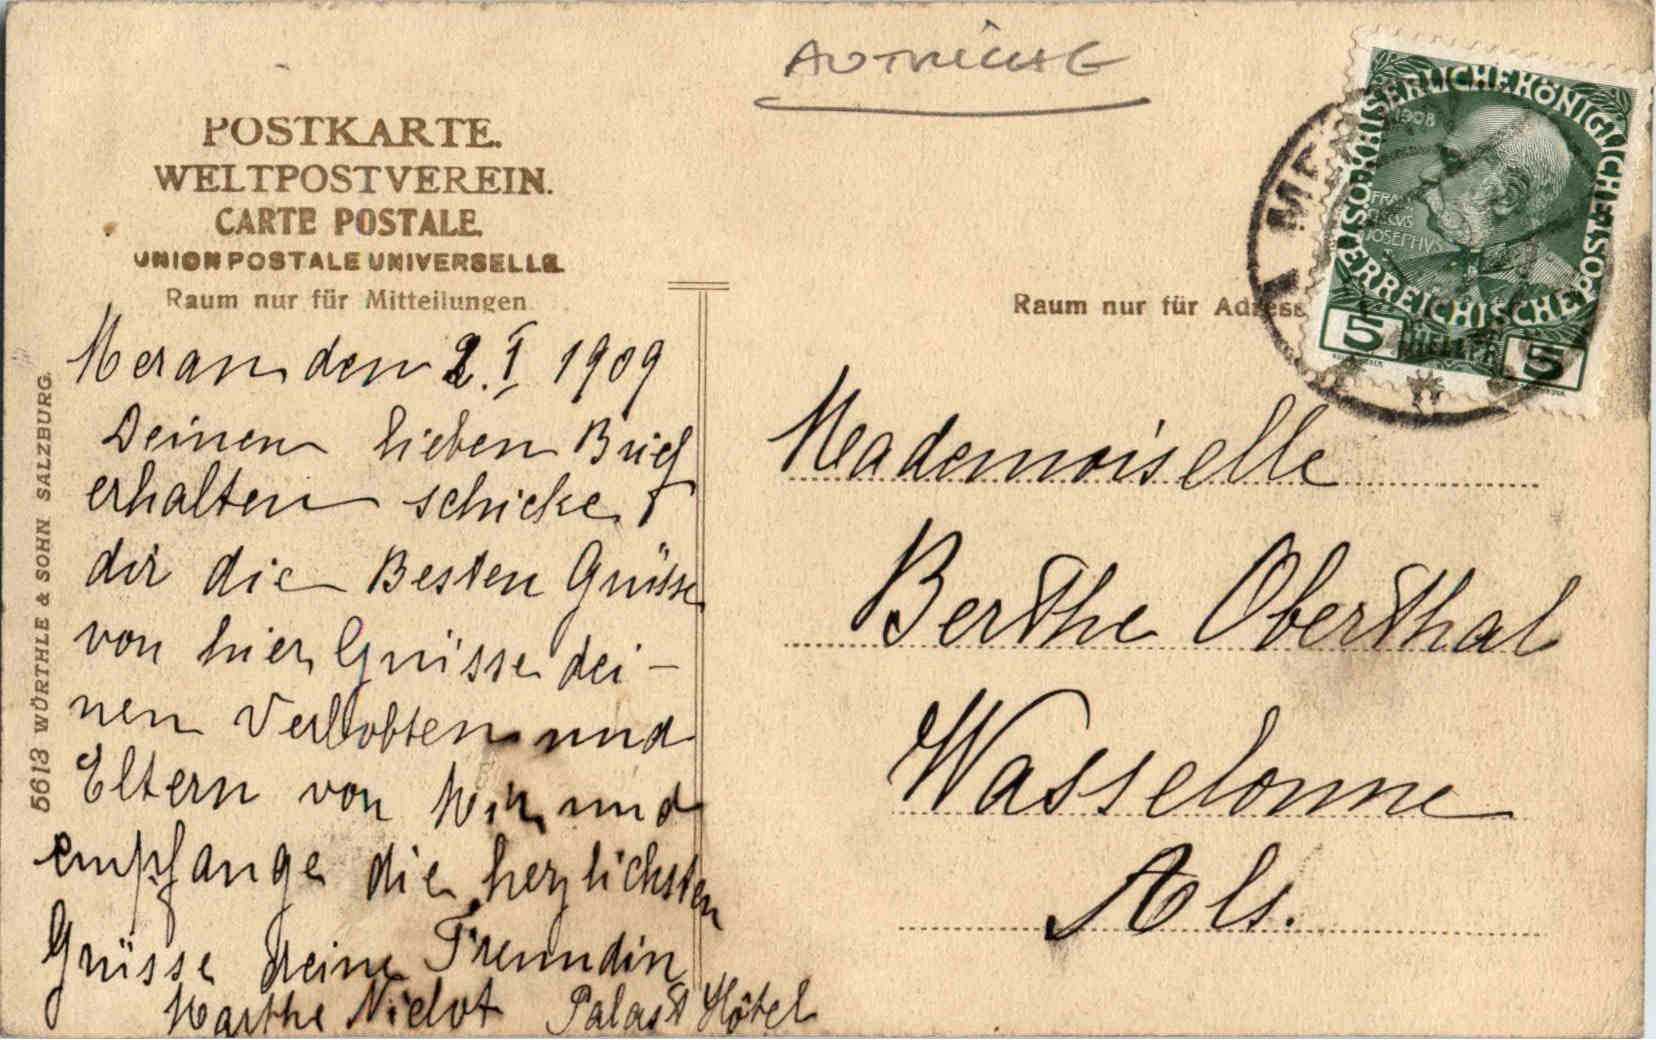 AUTRICHE
POSTKARTE.
WELTPOSTVEREIN.
CARTE POSTALE.
UNION POSTALE UNIVERSELLE.
Raum nur für Mitteilungen
Meran den 2. I 1909
Deinen lieben Brief
erhalten schicke
dir die Besten Grüsse
von hier, Grüsse dei-
nen Verlobten und
Eltern von Mir, und
empfange die herzlichsten
Grüsse deine Freundin
Marthe Niclot Palast Hôtel
5613 WÜRTHLE & SOHN SALZBURG.
Raum nur für Adress
Mademoiselle
Berthe Oberthal
Wasselonne
Als.
KAISERLICHE KÖNIGLICHE ÖSTERREICHISCHE POST
1908
FRANCISCUS
JOSEPHVS
5 HELLER 5
MER